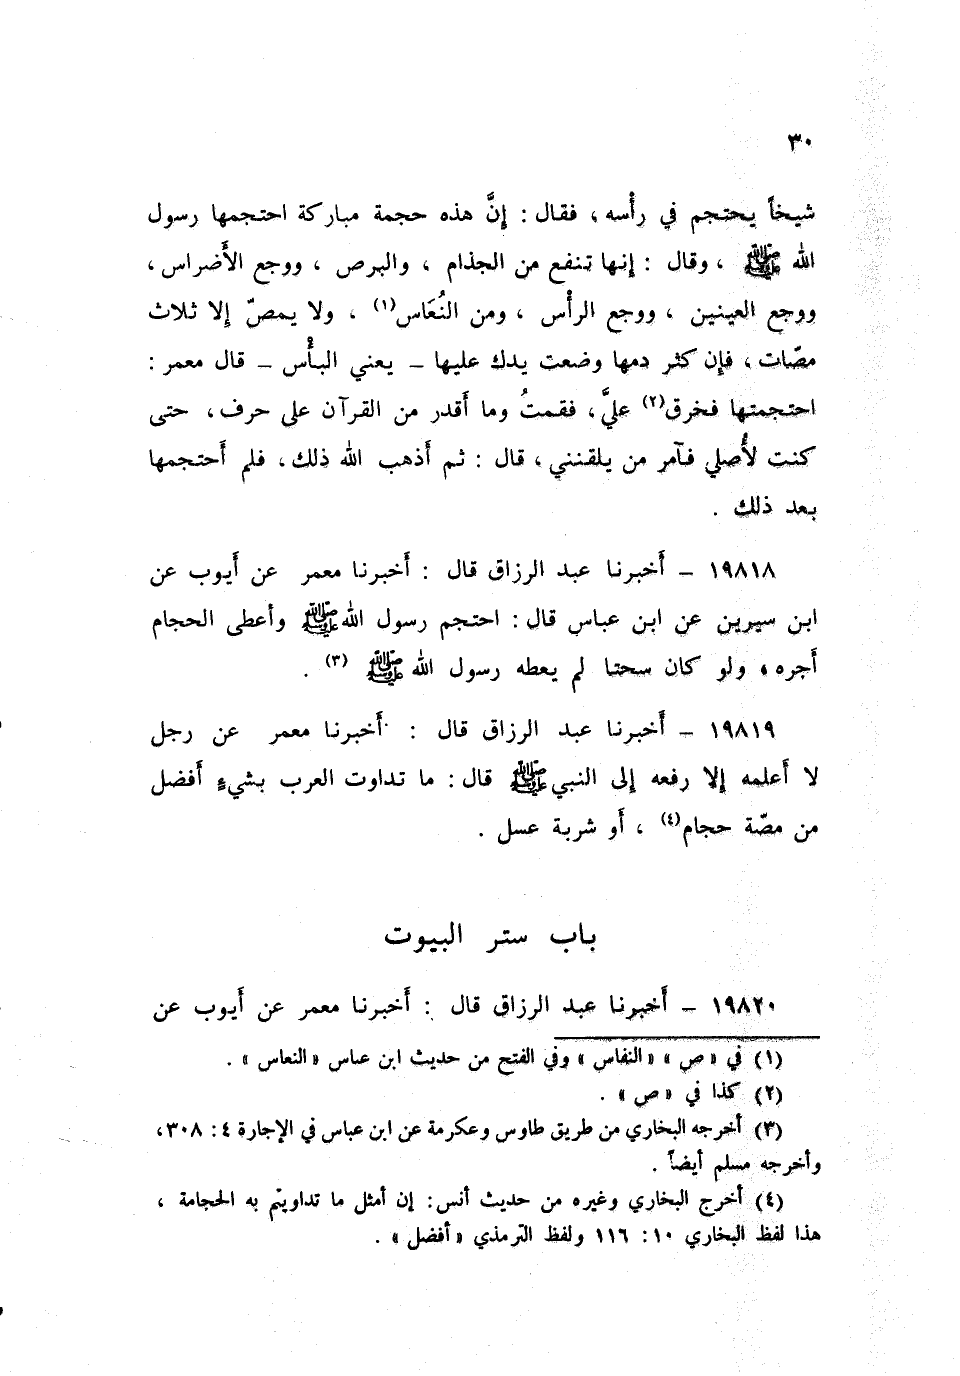 ٣٠
شيخاً يحتجم في رأْسه، فقال: إنَّ هذه حجمة مباركة احتجمها رسول
الله ﷺ ، وقال : إنها تنفع من الجذام ، والبرص ، ووجع الأَضراس،
ووجع العينين ، ووجع الرأْس ، ومن النُعَاس(١) ، ولا يمصّ إلا ثلاث
مصّات، فإن كثر دمها وضعت يدك عليها – يعني البأْس – قال معمر :
احتجمتها فخرق(٢) عليَّ، فقمتُ وما أَقدر من القرآن على حرف، حتى
كنت لأُصلي فآمر من يلقنني، قال : ثم أَذهب الله ذلك، فلم أَحتجمها
بعد ذلك .
١٩٨١٨ – أَخبرنا عبد الرزاق قال : أَخبرنا معمر عن أَيوب عن
ابن سيرين عن ابن عباس قال : احتجم رسول الله ﷺ وأعطى الحجام
أَجره، ولو كان سحتا لم يعطه رسول الله ﷺ (٣) .
١٩٨١٩ – أَخبرنا عبد الرزاق قال : أَخبرنا معمر عن رجل
لا أَعلمه إلا رفعه إلى النبي ﷺ قال : ما تداوت العرب بشيءٍ أَفضل
من مصّة حجام(٤) ، أَو شربة عسل .
باب ستر البيوت
١٩٨٢٠ – أَخبرنا عبد الرزاق قال : أَخبرنا معمر عن أَيوب عن
(١) في «ص» «النفاس» وفي الفتح من حديث ابن عباس «النعاس» .
(٢) كذا في «ص» .
(٣) أخرجه البخاري من طريق طاوس وعكرمة عن ابن عباس في الإجارة ٤ : ٣٠٨،
وأخرجه مسلم أيضاً .
(٤) أخرج البخاري وغيره من حديث أنس : إن أمثل ما تداويتم به الحجامة ،
هذا لفظ البخاري ١٠ : ١١٦ ولفظ الترمذي «أفضل» .